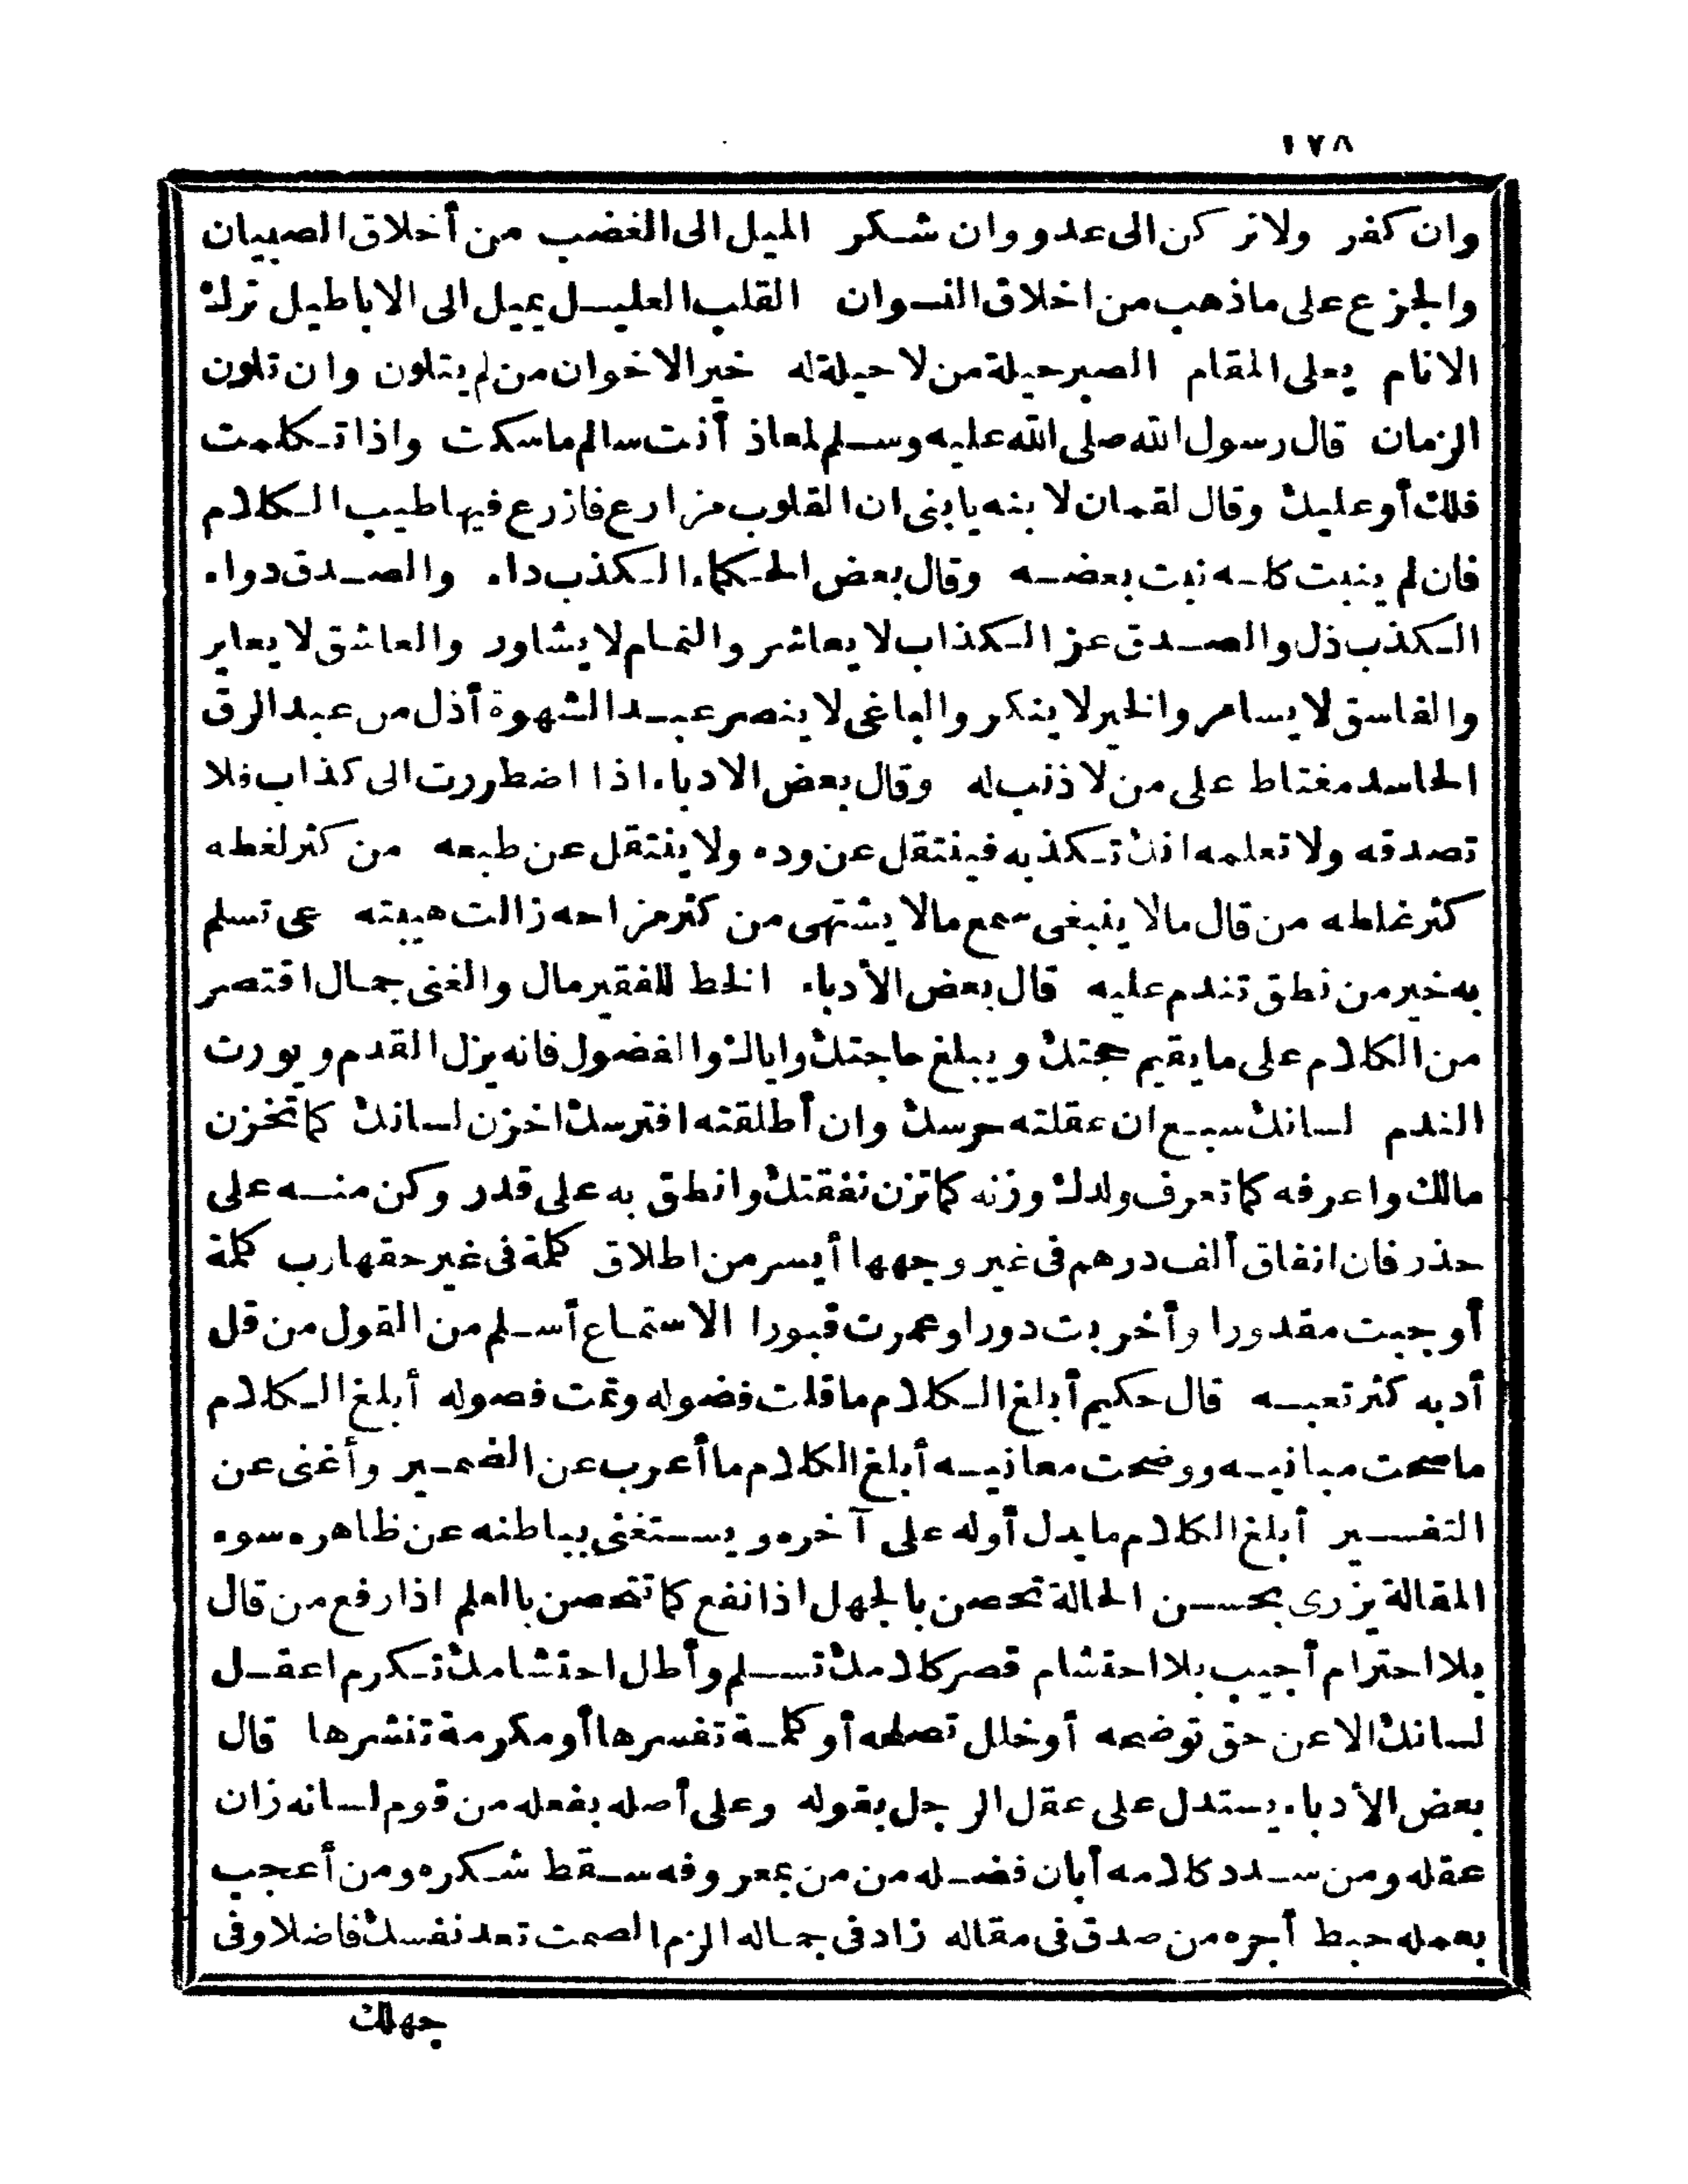 ١٧٨
وان كفر ولاتركن الى عدو وان شكر الميل الى الغضب من أخلاق الصبيان
والجزع على ماذهب من اخلاق النسوان القلب العليل يميل الى الاباطيل ترك
الانام يعلى المقام الصبر حيلة من لاحيلة له خير الاخوان من لم يتلون وان تلون
الزمان قال رسول الله صلى الله عليه وسلم لمعاذ أنت سالم ماسكت واذا تكلمت
فلك أو عليك وقال لقمان لابنه يابنى ان القلوب مزارع فازرع فيها طيب الكلام
فان لم ينبت كله نبت بعضه وقال بعض الحكماء الكذب داء والصدق دواء
الكذب ذل والصدق عز الكذاب لايعاشر والنمام لايشاور والعاشق لايعاير
والفاسق لايسامر والخير لاينكر والباغى لاينصر عبد الشهوة أذل من عبد الرق
الحاسد مغتاط على من لاذنب له وقال بعض الادباء اذا اضطررت الى كذاب فلا
تصدقه ولاتعلمه انك تكذبه فينتقل عن وده ولاينتقل عن طبعه من كثر لغطه
كثر غلطه من قال مالاينبغى سمع مالايشتهى من كثر مزاحه زالت هيبته عى تسلم
به خير من نطق تندم عليه قال بعض الأدباء الخط للفقير مال والغنى جمال اقتصر
من الكلام على مايقيم حجتك ويبلغ حاجتك واياك والفضول فانه يزل القدم ويورث
الندم لسانك سبع ان عقلته حرسك وان أطلقته افترسك اخزن لسانك كما تخزن
مالك واعرفه كما تعرف ولدك وزنه كما تزن نفقتك وانطق به على قدر وكن منه على
حذر فان انفاق ألف درهم فى غير وجهها أيسر من اطلاق كلمة فى غير حقها رب كلمة
أوجبت مقدورا وأخربت دورا وعمرت قبورا الاستماع أسلم من القول من قل
أدبه كثر تعبه قال حكيم أبلغ الكلام ماقلت فضوله وتمت فصوله أبلغ الكلام
ماصحت مبانيه ووضحت معانيه أبلغ الكلام ماأعرب عن الضمير وأغنى عن
التفسير أبلغ الكلام مايدل أوله على آخره ويستغنى بباطنه عن ظاهره سوء
المقالة يزرى بحسن الحالة تحصن بالجهل اذا نفع كما تتحصن بالعلم اذا رفع من قال
بلا احترام أجيب بلا احتشام قصر كلامك تسلم وأطل احتشامك تكرم اعقل
لسانك الاعن حق توضحه أو خلل تصلحه أو كلمة تفسرها أو مكرمة تنشرها قال
بعض الأدباء يستدل على عقل الرجل بقوله وعلى أصله بفعله من قوم لسانه زان
عقله ومن سدد كلامه أبان فضله من من بمعروفه سقط شكره ومن أعجب
بعمله حبط أجره من صدق فى مقاله زاد فى جماله الزم الصمت تعد نفسك فاضلا وفى
جهلك